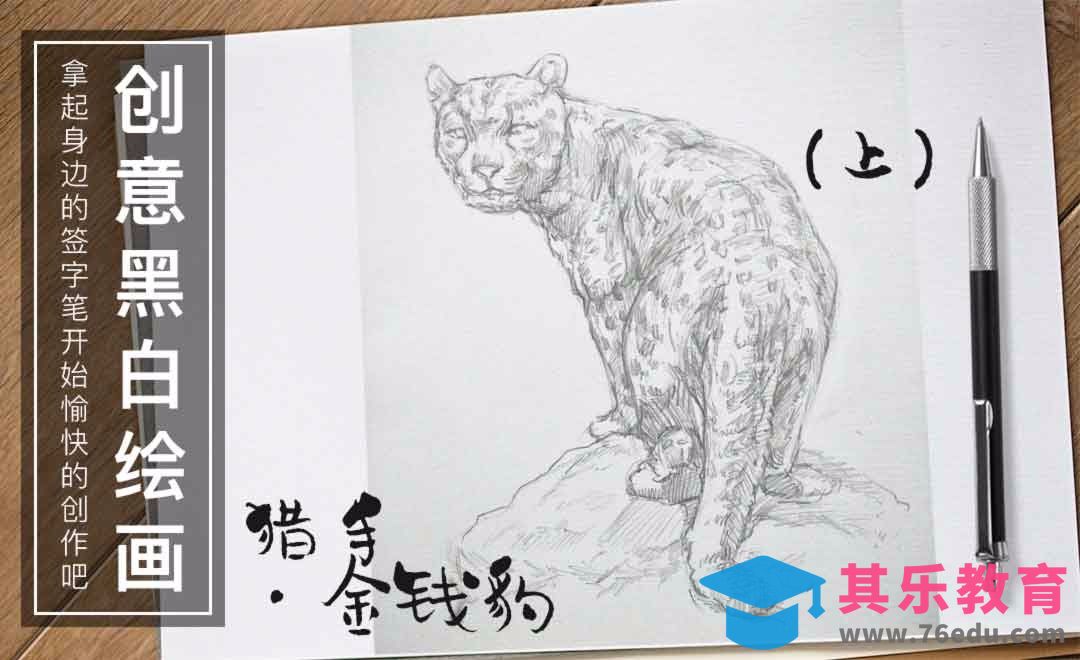 创意黑白绘画
拿起身边的签字笔开始愉快的创作吧
(上)
猎手
·金钱豹
其乐教育
www.76edu.com